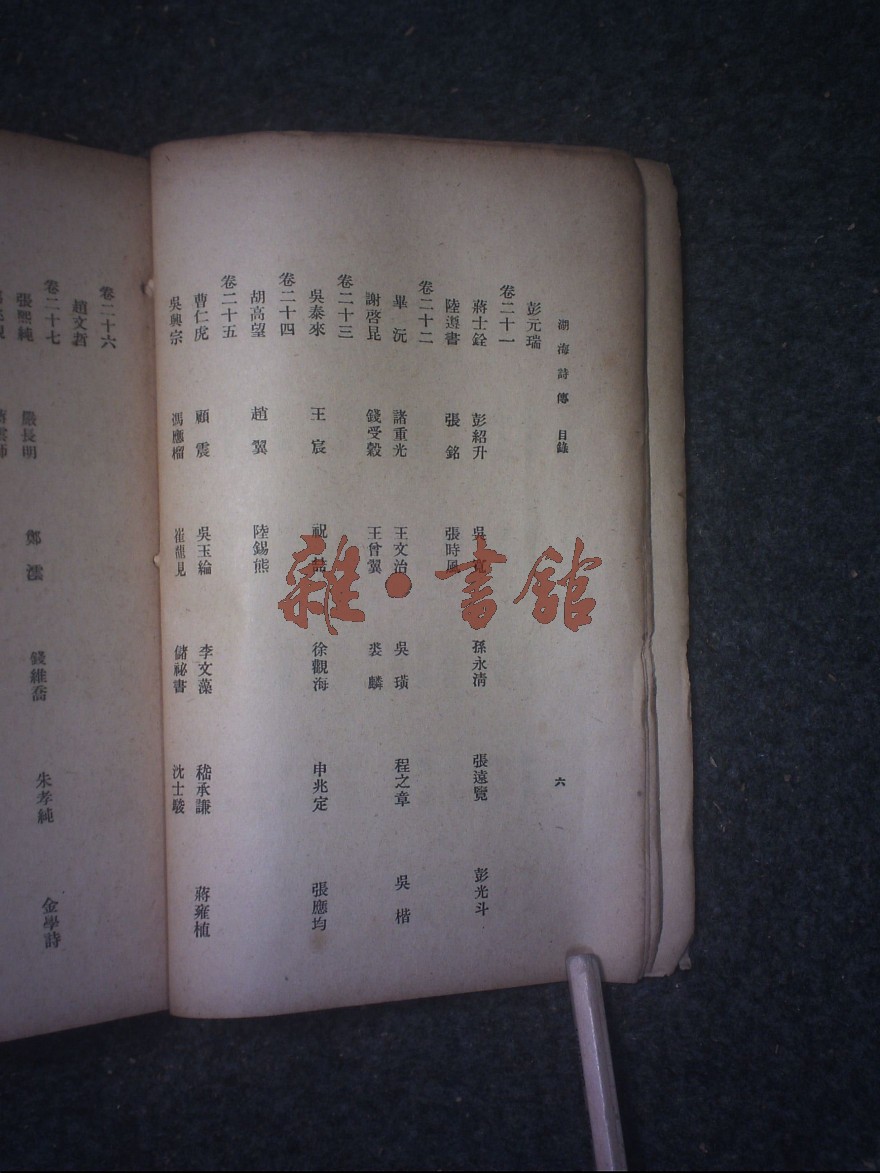 湖海詩傳 目錄 六
彭元瑞
卷二十一
蔣士銓 彭紹升 吳 孫永清 張遠覽 彭光斗
陸遵書 張銘 張時風
卷二十二
畢沅 諸重光 王文治 吳璜 程之章 吳楷
謝啓昆 錢受穀 王曾翼 裘麟
卷二十三
吳泰來 王宸 祝喆 徐觀海 申兆定 張應均
卷二十四
胡高望 趙翼 陸錫熊
卷二十五
曹仁虎 顧震 吳玉綸 李文藻 嵇承謙 蔣雍植
吳興宗 馮應榴 崔龍見 儲祕書 沈士駿
卷二十六
趙文哲
卷二十七
張熙純 嚴長明 鄭澐 錢維喬 朱孝純 金學詩
雜·書館